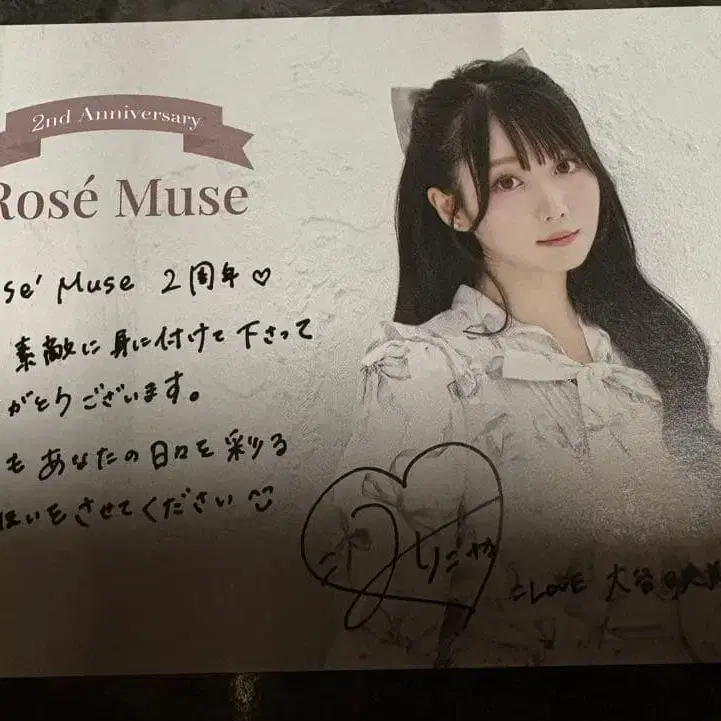 2nd Anniversary
Rosé Muse
se' Muse 2周年♡
素敵に身に付けて下さって
がとうございます。
も あなたの日々を彩る
いをさせてください
=LOVE 大谷